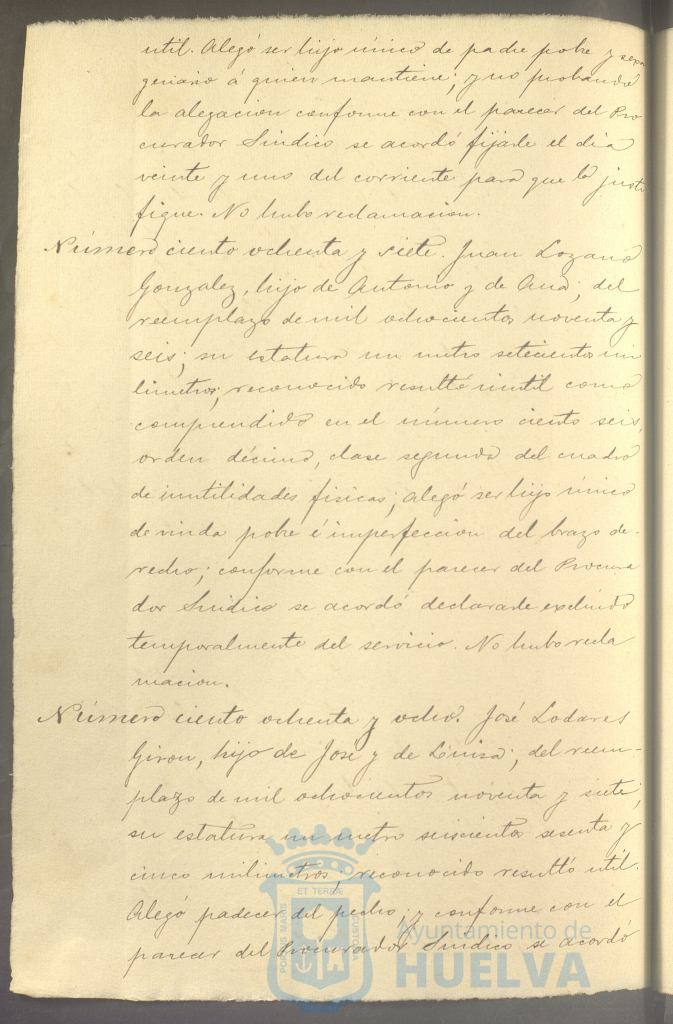 util. Alegó ser hijo único de padre pobre y sexa
genario á quien mantiene; y no probando
la alegacion conforme con el parecer del Pro
curador Sindico se acordó fijarle el dia
veinte y uno del corriente para que lo justi
fique. No hubo reclamacion.
Número ciento ochenta y siete. Juan Lozano
Gonzalez, hijo de Antonio y de Ana; del
reemplazo de mil ochocientos noventa y
seis; su estatura un metro setecientos mi
limetros; reconocido resultó inutil como
comprendido en el número ciento seis,
orden décimo, clase segunda del cuadro
de inutilidades fisicas; alegó ser hijo único
de viuda pobre é imperfeccion del brazo de-
recho; conforme con el parecer del Procura
dor Sindico se acordó declararle excluido
temporalmente del servicio. No hubo recla
macion.
Número ciento ochenta y ocho. José Lodares
Giron, hijo de José y de Luisa; del reem-
plazo de mil ochocientos noventa y siete;
su estatura un metro seiscientos sesenta y
cinco milimetros; reconocido resultó util.
Alegó padecer del pecho; y conforme con el
parecer del Procurador Sindico se acordó
PORTUS MARIS ET TERRE CUSTODIA
Ayuntamiento de
HUELVA